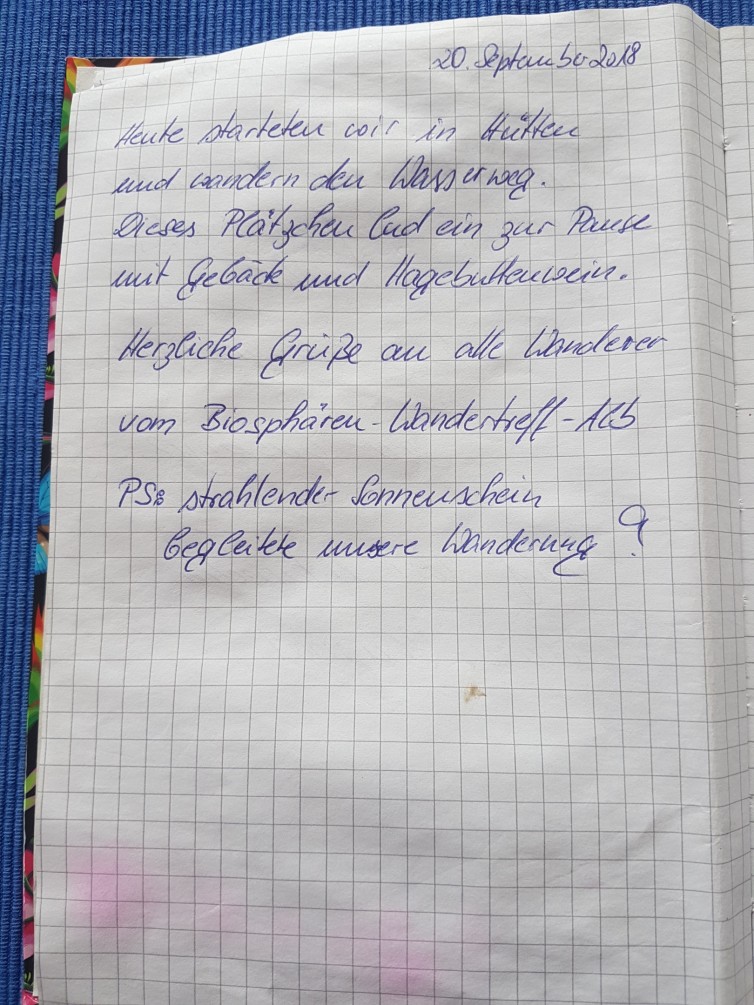 20. September 2018
Heute starteten wir in Hütten
und wandern den Wasserweg.
Dieses Plätzchen lud ein zur Pause
mit Gebäck und Hagebuttenwein.
Herzliche Grüße an alle Wanderer
vom Biosphären-Wandertreff-Alb
PS: strahlender Sonnenschein
begleitete unsere Wanderung!